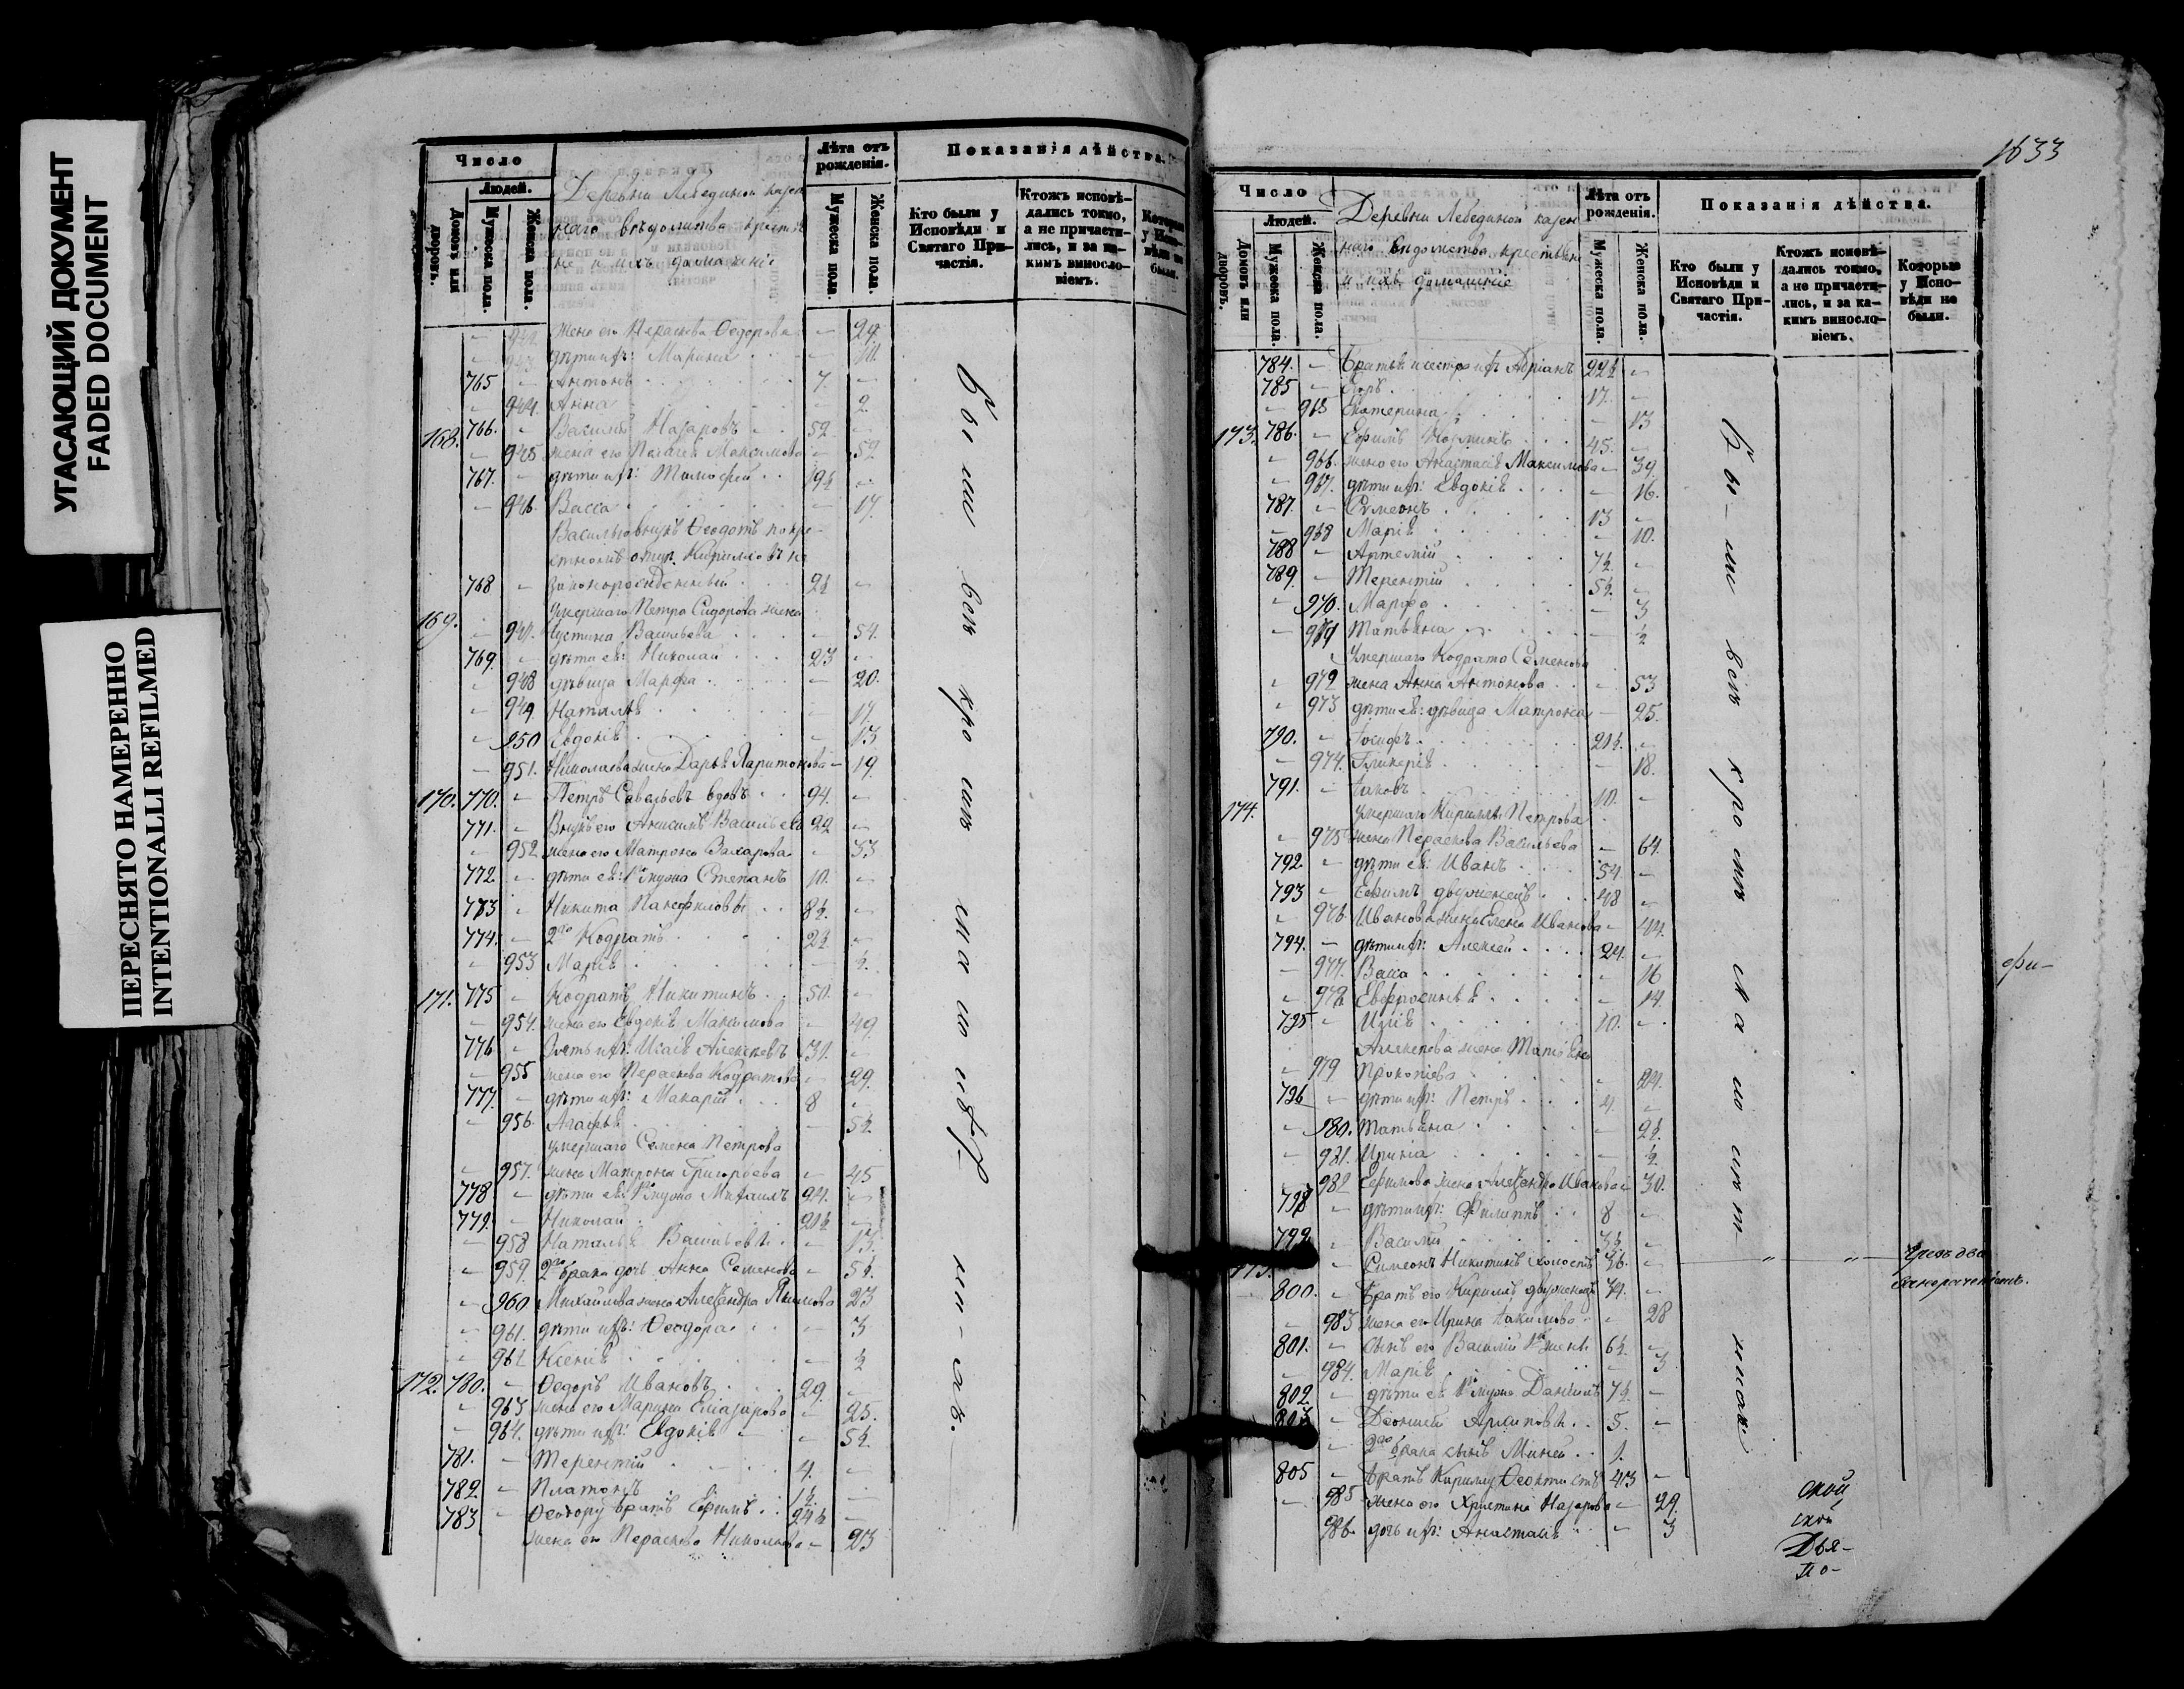 УГАСАЮЩИЙ ДОКУМЕНТ
FADED DOCUMENT
ПЕРЕСНЯТО НАМЕРЕННО
INTENTIONALLI REFILMED
Число
Людей.
Домовъ или дворовъ.
Мужеска пола.
Женска пола.
Деревни Лебединой казен
наго вѣдомства крестья
не и ихъ домашніе
Лѣта отъ рожденія.
Мужеска пола.
Женска пола.
Показанія дѣйства.
Кто были у Исповѣди и Святаго При-
частія.
Ктожъ исповѣ-
дались токмо,
а не причасти-
лись, и за ка-
кимъ винносло-
віемъ.
— 942. жена его Параскева Федорова — 29.
— 943 дѣти ихъ: Марина — 11.
765 — Антонъ 7. —
— 944. Анна — 2.
168. 766. — Василій Назаровъ 52 —
— 945 жена его Пелагея Максимова — 52
767. — дѣти ихъ: Тимофей 19½ —
— 946. Васса — 17.
768 — законорожденный 2½ —
169. умершаго Петра Сидорова жена
— 947. Устина Васильева — 54.
769. — дѣти ея: Николай 23 —
— 948 дѣвица Марфа — 20.
— 949. Наталья — 17.
— 950 Евдокія — 13
— 951. Николаева жена Дарья Харитонова — 19.
170. 770. — Петръ Савельевъ вдовъ 94. —
771. — Внукъ его Анисимъ Васильевъ 22 —
— 952 жена его Матрона Захарова — 33
772 — дѣти ея: 1го мужа Степанъ 10. —
773 — Никита Панфиловы 8½. —
774. — 2го Кодратъ 2½ —
— 953 Марія — ½.
171. 775 — Кодратъ Никитинъ 50. —
— 954. жена его Евдокія Максимова — 49.
776 — Зять ихъ: Исаія Алексѣевъ 31. —
— 955 жена его Параскева Кодратова — 29.
777. — дѣти ихъ: Макарій 8 —
— 956. Агафья — 5½.
умершаго Семена Петрова
— 957. жена Матрона Григорьева — 45
778 — дѣти ея: 1го мужа Михаилъ 24. —
779. — Николай 21½ —
— 958 Наталья Васильевы — 13.
— 959. 2го брака дочь Анна Семенова — 5½.
— 960 Михайлова жена Александра Якимова 23
— 961. дѣти ихъ: Феодора — 3
— 962 Ксенія — ½
172. 780. — Федоръ Ивановъ 29. —
— 963 жена его Марина Елизарова — 25.
— 964. дѣти ихъ: Евдокія — 5½
781. — Терентій 4. —
782. — Платонъ 1½. —
783 — Феодору братъ Ефимъ 24½ —
жена его Параскева Николаева — 23
1633
Число
Людей.
Домовъ или дворовъ.
Мужеска пола.
Женска пола.
Деревни Лебединой казен
наго вѣдомства крестьяне
и ихъ домашніе
Лѣта отъ рожденія.
Мужеска пола.
Женска пола.
Показанія дѣйства.
Кто были у Исповѣди и Святаго При-
частія.
Ктожъ исповѣ-
дались токмо,
а не причасти-
лись, и за ка-
кимъ винносло-
віемъ.
Которые у Испо-
вѣди не были.
784. — Братья и сестра ихъ Адріанъ 22½ —
785 — Егоръ 17. —
— 965 Екатерина — 13
173. 786. — Ефимъ Козминъ 45. —
— 966. жена его Анастасія Максимова — 39.
— 967. дѣти ихъ: Евдокія — 16.
787. — Симеонъ 13 —
— 968 Марія — 10.
788 — Артемій 7½. —
789. — Терентій 5½. —
— 970. Марфа — 3
— 971 Татьяна — ½
умершаго Кодрата Семенова
— 972 жена Анна Антонова — 53
— 973 дѣти ея: дѣвица Матрона — 25.
790. — Іосифъ 21½. —
— 974. Гликерія — 18.
791. — Іаковъ 10. —
174. умершаго Кирилла Петрова
— 975 жена Параскева Васильева — 64.
792. — дѣти ея: Иванъ 54. —
793 — Ефимъ двуженецъ 48 —
— 976 Иванова жена Елена Иванова — 44.
794. — дѣти ихъ: Алексей 24. —
— 977. Васса — 16
— 978 Евфросинья — 14.
795 — Илія 10. —
Алексеева жена Татьяна
— 979 Прокопіева — 24.
796 — дѣти ихъ: Петръ 4. —
— 980. Татьяна — 2½.
— 981. Ирина — ½
— 982 Ефимова жена Александра Иванова — 30.
798 — дѣти ихъ: Филиппъ 8 —
799 — Василій 3½. —
— Симеонъ Никитинъ холостъ 36. —
800. — Братъ его Кириллъ двуженецъ 34. —
— 983 жена его Ирина Іакимова — 28
801. — сынъ его Василій 1й жены 6½. —
— 984. Марія — 3
802. — дѣти ея 1го мужа Даніилъ 7½ —
803 — Діонисій Архиповы 5. —
— 2го брака сынъ Миней 1.
805 — Братъ Кириллу Феоктистъ 43 —
— 985 жена его Христина Назарова — 29.
986. дочь ихъ: Анастасія — 3
фи-
ской
ской
Дья-
по-